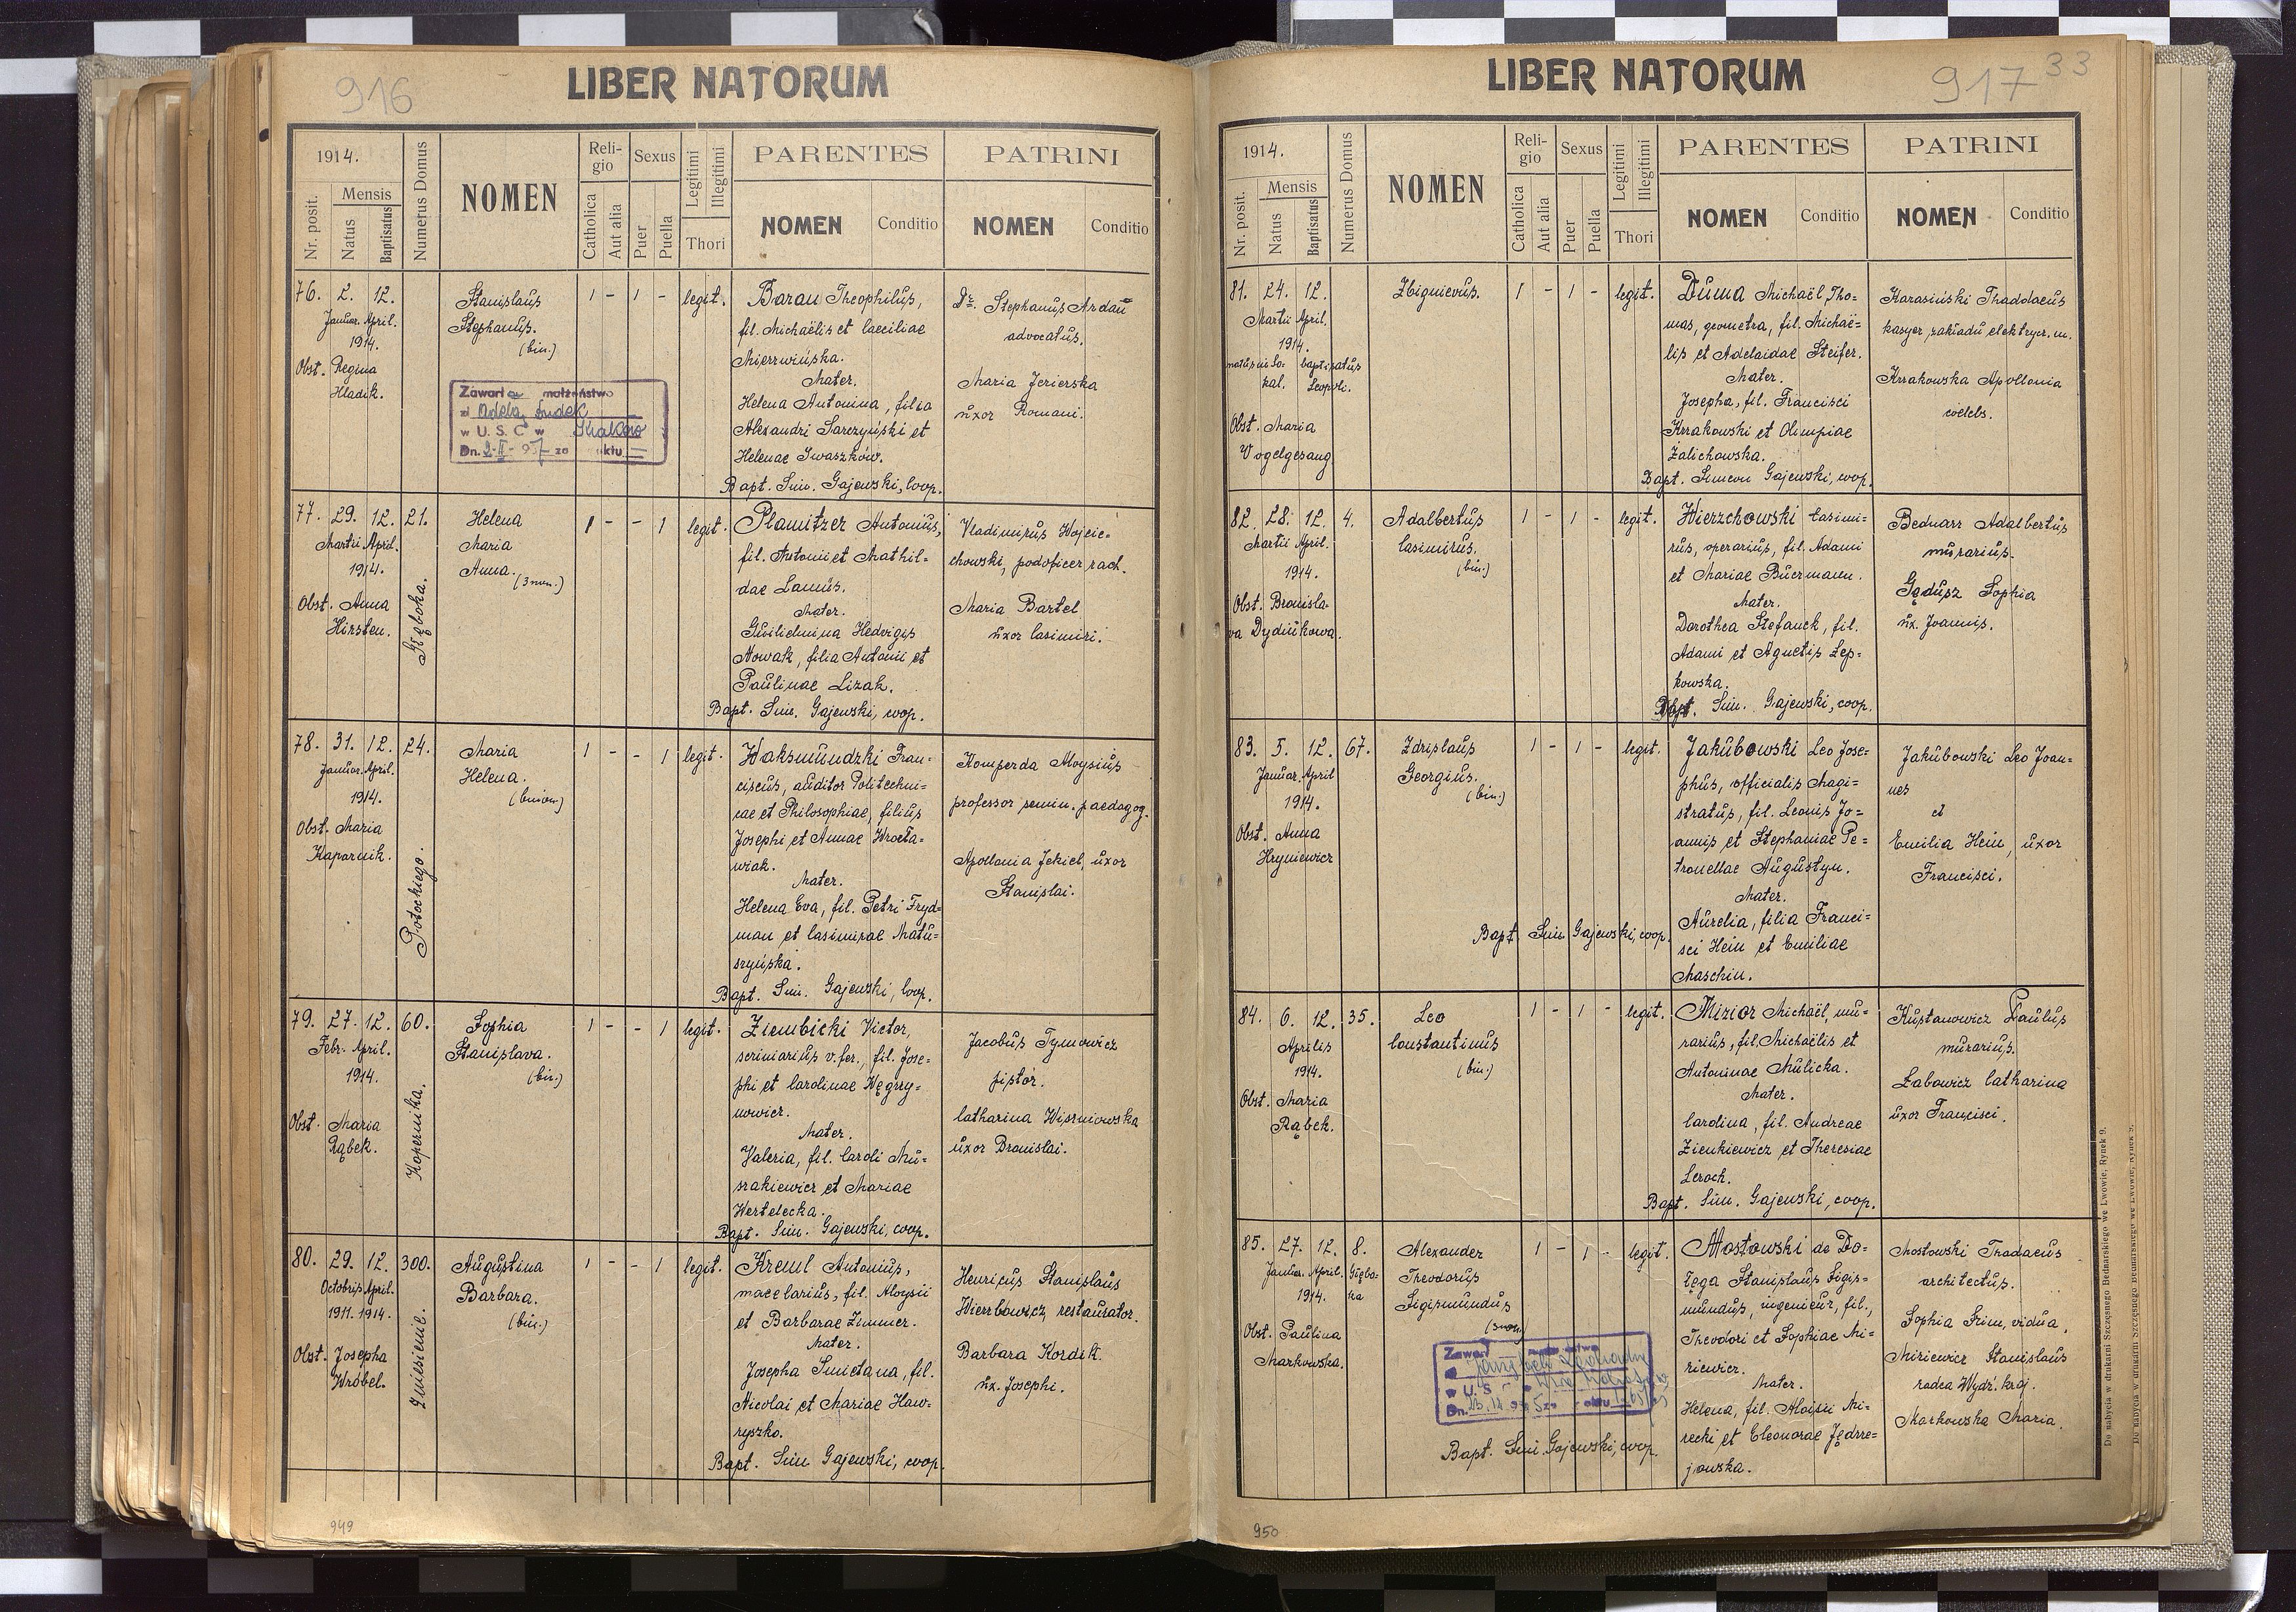 916
LIBER NATORUM
1914.
Nr. posit.
Mensis
Natus
Baptisatus
Numerus Domus
NOMEN
Religio
Catholica
Aut alia
Sexus
Puer
Puella
Legitimi
Illegitimi
Thori
PARENTES
NOMEN
Conditio
PATRINI
NOMEN
Conditio
76. 2. 12.
Januar. April.
1914.
Obst. Regina
Hladik.
Stanislaus
Stephanus.
(bin.)
Zawarł małżeństwo
w U. S. C w Kraków
1 - 1 - legit.
Baran Theophilus,
fil. Michaëlis et Caeciliae
Mierzwińska.
Mater.
Helena Antonina, filia
Alexandri Sarczyński et
Helenae Iwaszków.
Bapt. Sim. Gajewski, Coop.
Dr. Stephanus Ardan
advocatus.
Maria Jezierska
uxor Romani.
77. 29. 12. 21.
Martii April.
1914.
Obst. Anna
Hirsten.
Głęboka.
Helena
Maria
Anna. (3 nom.)
1 - - 1 legit.
Plamitzer Antonius,
fil. Antonii et Mathil=
dae Lamus.
Mater.
Guilielmina Hedvigis
Nowak, filia Antonii et
Paulinae Lizak.
Bapt. Sim. Gajewski, coop.
Vladimirus Wojcie=
chowski, podoficer rach.
Maria Bartel
uxor Casimiri.
78. 31. 12. 24.
Januar. April.
1914.
Obst. Maria
Kapornik.
Potockiego.
Maria
Helena.
(binom.)
1 - - 1 legit.
Waksmundzki Fran=
ciscus, auditor Politechni=
cae et Philosophiae, filius
Josephi et Annae Wrocła=
wiak.
Mater.
Helena Eva, fil. Petri Fryd=
man et Casimirae Matu=
szyńska.
Bapt. Sim. Gajewski, Coop.
Komperda Aloysius
professor semin. paedagog.
Apollonia Jekiel, uxor
Stanislai.
79. 27. 12. 60.
Febr. April.
1914.
Obst. Maria
Rąbek.
Kopernika.
Sophia
Stanislava.
(bin.)
1 - - 1 legit.
Ziembicki Victor,
scriniarius v. fer., fil. Jose=
phi et Carolinae Węgrzy=
nowicz.
Mater.
Valeria, fil. Caroli Mu=
szakiewicz et Mariae
Wertelecka.
Bapt. Sim. Gajewski, coop.
Jacobus Tymowicz
pistor.
Catharina Wiszniowska
uxor Bronislai.
80. 29. 12. 300.
Octobris April.
1911. 1914.
Obst. Josepha
Wróbel.
Zniesienie.
Augustina
Barbara.
(bin.)
1 - - 1 legit.
Kreml Antonius,
macelarius, fil. Aloysii
et Barbarae Zimmer.
Mater.
Josepha Smietana, fil.
Nicolai et Mariae Haw=
ryszko.
Bapt. Sim Gajewski, coop.
Henricus Stanislaus
Wierzbowicz restaurator.
Barbara Kordik.
ux. Josephi.
949
917 33
LIBER NATORUM
1914.
Nr. posit.
Mensis
Natus
Baptisatus
Numerus Domus
NOMEN
Religio
Catholica
Aut alia
Sexus
Puer
Puella
Legitimi
Illegitimi
Thori
PARENTES
NOMEN
Conditio
PATRINI
NOMEN
Conditio
81. 24. 12.
Martii April.
1914.
natus in So- baptisatus
kal. Leopoli.
Obst. Maria
Vogelgesang
Zbignievus.
1 - 1 - legit.
Duma Michaël, Tho=
mas, geometra, fil. Michaë=
lis et Adelaidae Steifer.
Mater.
Josepha, fil. Francisci
Krrakowski et Olimpiae
Zalichowska.
Bapt. Simeon Gajewski, coop.
Harasiński Thaddaeus
kasyer zakładu elektrycz. m.
Krrakowska Apollonia
coelebs.
82. 28. 12. 4.
Martii April.
1914.
Obst. Bronisla-
va Dydiukowa.
Adalbertus
Casimirus.
(bin.)
1 - 1 - legit.
Wierzchowski Casimi=
rus, operarius, fil. Adami
et Mariae Buermann.
Mater.
Dorothea Stefanek, fil.
Adami et Agnetis Lep=
kowska.
Bapt. Sim. Gajewski, coop.
Bednarz Adalbertus
murarius.
Gędusz Sophia
ux. Joannis.
83. 5. 12. 67.
Januar. April
1914.
Obst. Anna
Hryniewicz
Zdzislaus
Georgius.
(bin.)
1 - 1 - legit.
Bapt. Sim Gajewski, coop.
Jakubowski Leo Jose=
phus, officialis Magi=
stratus, fil. Leonis Jo=
annis et Stephaniae Pe=
tronellae Augustyn.
Mater.
Aurelia, filia Franci=
sci Hein et Emiliae
Maschin.
Jakubowski Leo Joan=
nes
et
Emilia Hein, uxor
Francisci.
84. 6. 12. 35.
Aprilis
1914.
Obst. Maria
Rąbek.
Leo
Constantinus
(bin.)
1 - 1 - legit.
Mizior Michaël, mu=
rarius, fil. Michaëlis et
Antoninae Mulicka.
Mater.
Carolina, fil. Andreae
Zienkiewicz et Theresiae
Leroch.
Bapt. Sim. Gajewski, coop.
Kustanowicz Paulus
murarius.
Łabowicz Catharina
uxor Francisci.
85. 27. 12. 8.
Januar. April. Głębo-
1914. ka
Obst. Paulina
Markowska.
Alexander
Theodorus
Sigismundus
(3 nom.)
1 - 1 - legit.
Bapt. Sim. Gajewski, coop.
Mostowski de Do=
łęga Stanislaus Sigis=
mundus, ingenieur, fil.,
Theodori et Sophiae Mi=
ziewicz.
Mater.
Helena, fil. Aloisii Mi=
recki et Eleonorae Jędrze=
jowska.
Mostowski Thadaeus
architectus.
Sophia Srim, vidua,
Miziewicz Stanislaus
radca Wydz. kraj.
Markowska Maria.
950
Do nabycia w drukarni Szczęsnego Bednarskiego we Lwowie, Rynek 9.
Do nabycia w drukarni Szczęsnego Bednarskiego we Lwowie, Rynek 9.